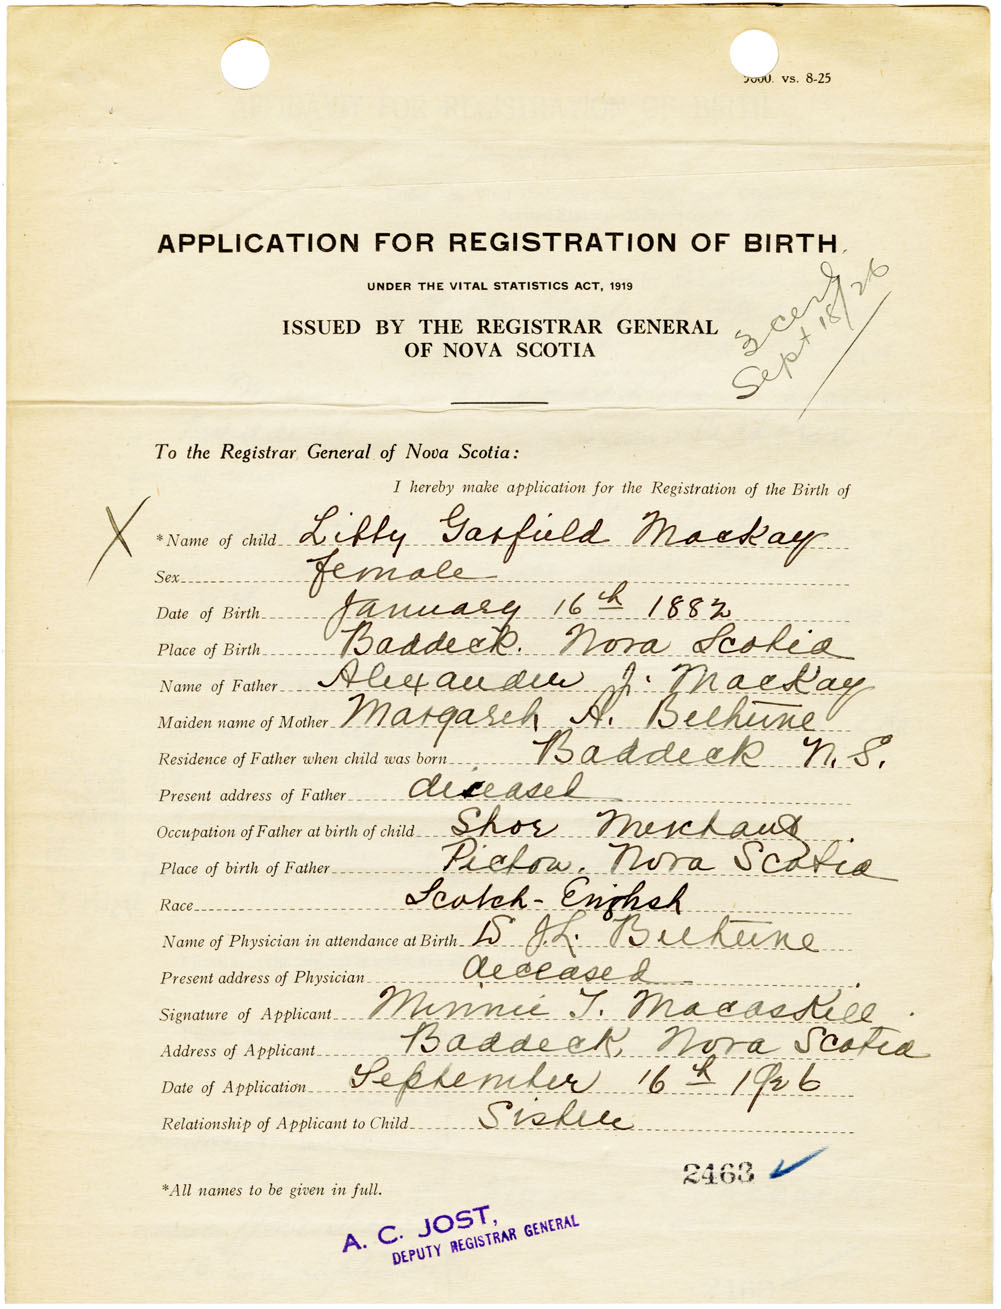 vs. 8-25
APPLICATION FOR REGISTRATION OF BIRTH
UNDER THE VITAL STATISTICS ACT, 1919
ISSUED BY THE REGISTRAR GENERAL
OF NOVA SCOTIA
3 cert
Sept 18/26
To the Registrar General of Nova Scotia:
I hereby make application for the Registration of the Birth of
X
*Name of child Libby Garfield MacKay
Sex female
Date of Birth January 16th 1882
Place of Birth Baddeck. Nova Scotia
Name of Father Alexander J. MacKay
Maiden name of Mother Margaret A. Bethune
Residence of Father when child was born Baddeck N.S.
Present address of Father deceased
Occupation of Father at birth of child Shoe Merchant
Place of birth of Father Pictou. Nova Scotia
Race Scotch-English
Name of Physician in attendance at Birth D J.L. Bethune
Present address of Physician deceased
Signature of Applicant Minnie T. Macaskill
Address of Applicant Baddeck, Nova Scotia
Date of Application September 16th 1926
Relationship of Applicant to Child Sister
2463
*All names to be given in full.
A. C. JOST,
DEPUTY REGISTRAR GENERAL